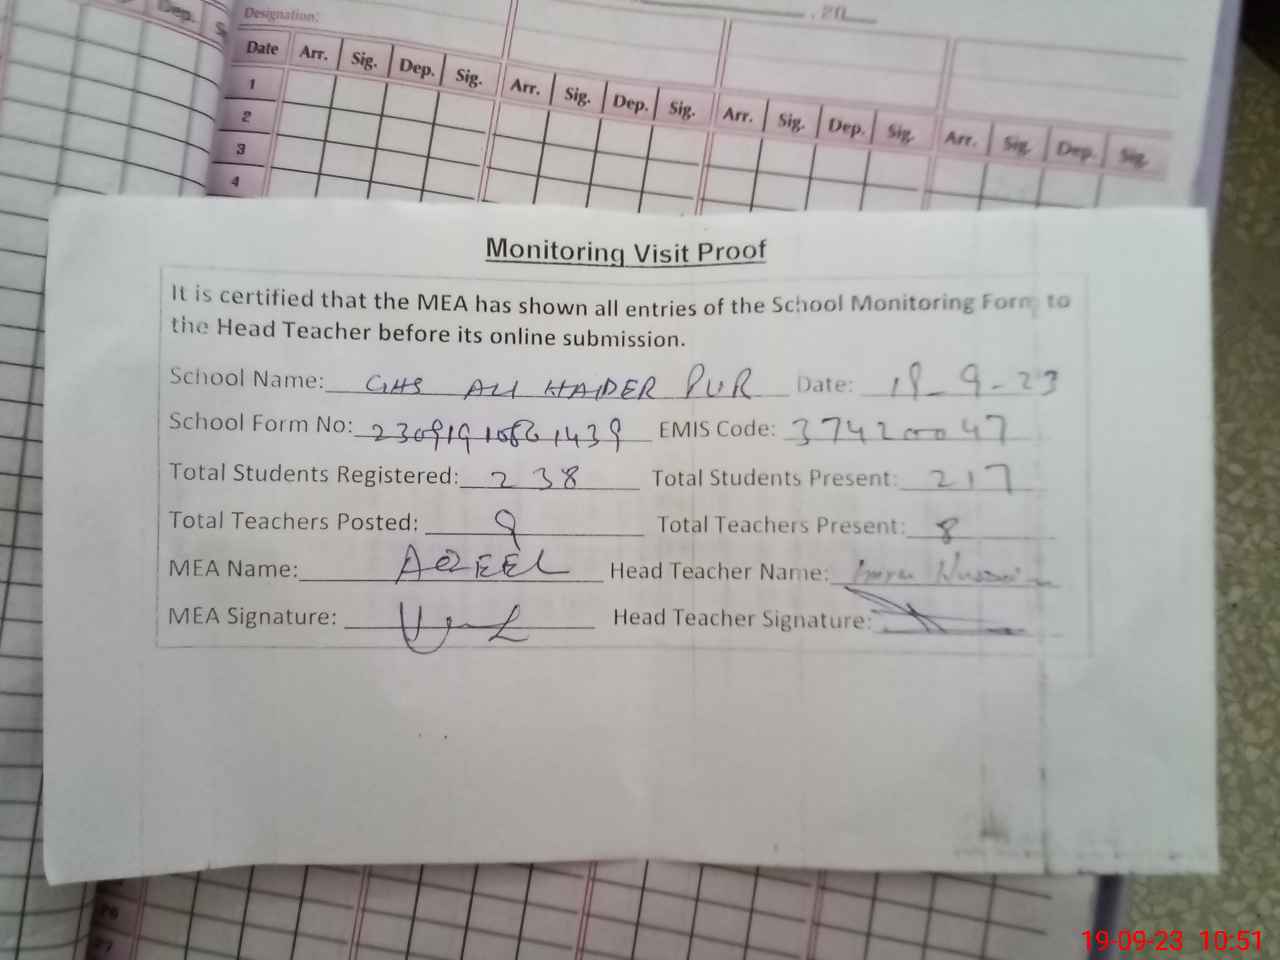 Dep.
, 20
Designation:
Date Arr. Sig. Dep. Sig. Arr. Sig. Dep. Sig. Arr. Sig. Dep. Sig. Arr. Sig. Dep. Sig.
1
2
3
4
Monitoring Visit Proof
It is certified that the MEA has shown all entries of the School Monitoring Form to
the Head Teacher before its online submission.
School Name: GHS ALI HAIDER PUR Date: 19-9-23
School Form No: EMIS Code: 37420047
Total Students Registered: 238 Total Students Present: 217
Total Teachers Posted: 9 Total Teachers Present: 8
MEA Name: Head Teacher Name:
MEA Signature: Head Teacher Signature:
26
27
19-09-23 10:51